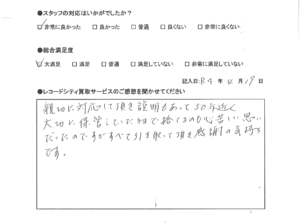 ●スタッフの対応はいかがでしたか？
☑非常に良かった □良かった □普通 □良くない □非常に良くない
●総合満足度
☑大満足 □満足 □普通 □満足していない □非常に満足していない
記入日 R4年 4月19日
●レコードシティ買取サービスのご感想を聞かせてください
親切に対応して頂き説明もあって50年近く
大切に保管していたので捨てるのも心苦しい思い
だったのですがすべて引き取って頂き感謝の気持ち
です。